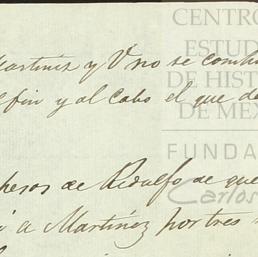 Martinez y V no se comb
fin y al cabo el que de
pesos de Ridolfo de que
a Martinez por tres
CENTRO
ESTUD
DE HIST
DE MEX
FUNDA
Carlos